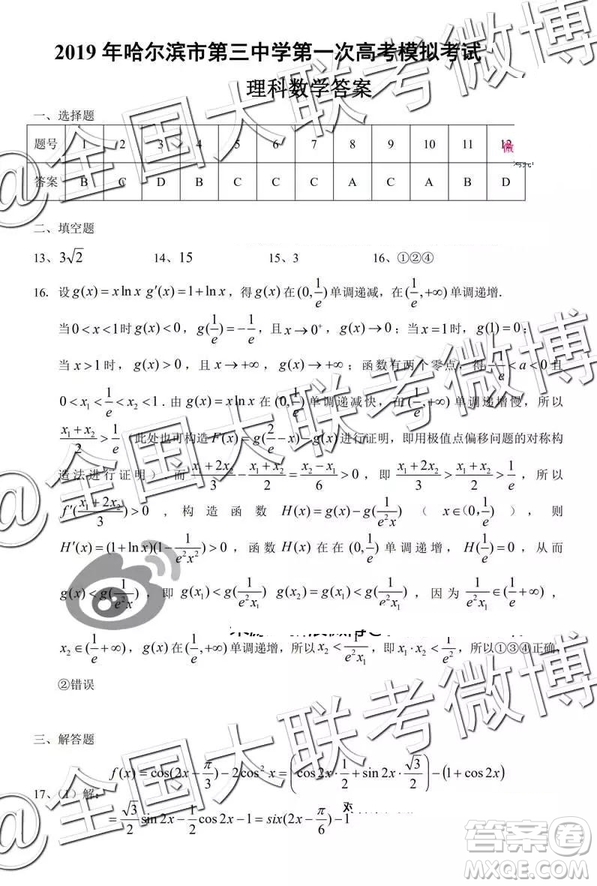 2019 年哈尔滨市第三中学第一次高考模拟考试
理科数学答案
一、选择题
题号 1 2 3 4 5 6 7 8 9 10 11 12
答案 B C D B C C B C A C A B D
二、填空题
13、3√2 14、15 15、3 16、①②④
16、设 g(x) = x ln x g'(x) = 1 + ln x，得 g(x) 在 (0, 1/e) 单调递减，在 (1/e, +∞) 单调递增.
当 0 < x < 1 时 g(x) < 0，g(1/e) = -1/e，且 x → 0⁺，g(x) → 0；当 x → 1 时，g(1) = 0；
当 x > 1 时，g(x) > 0，且 x → +∞，g(x) → +∞；函数有两个零点，得 -1/e < a < 0 且
0 < x₁ < 1/e < x₂ < 1．由 g(x) = x ln x 在 (0, 1/e) 单调递减快，在 (1/e, +∞) 单调递增慢，所以
(x₁ + x₂)/2 > 1/e（此处也可构造 F(x) = g(2/e - x) - g(x) 进行证明，即用极值点偏移问题的对称构
造法进行证明）.而 (x₁ + 2x₂)/3 - (x₁ + x₂)/2 = (x₂ - x₁)/6 > 0，即 (x₁ + 2x₂)/3 > (x₁ + x₂)/2 > 1/e，所以
f'((x₁ + 2x₂)/3) > 0，构造函数 H(x) = g(x) - g(1/(e²x))（x ∈ (0, 1/e)），则
H'(x) = (1 + ln x)(1 - 1/(e²x²)) > 0，函数 H(x) 在在 (0, 1/e) 单调递增，从而
g(x) < g(1/(e²x))，即 g(x₁) < g(1/(e²x₁)) g(x₂) < g(1/(e²x₁))，因为 1/(e²x₁) ∈ (1/e, +∞)，
x₂ ∈ (1/e, +∞)，g(x) 在 (1/e, +∞) 单调递增，所以 x₂ < 1/(e²x₁)，即 x₁·x₂ < 1/e²，所以①③④正确，
②错误
三、解答题
17、（1）解：f(x) = cos(2x - π/3) - 2cos²x = (cos2x · 1/2 + sin2x · √3/2) - (1 + cos2x)
= √3/2 sin2x - 1/2 cos2x - 1 = six(2x - π/6) - 1
@全国大联考微博
@全国大联考微博
@全国大联考微博
答案圈
MXQE.COM